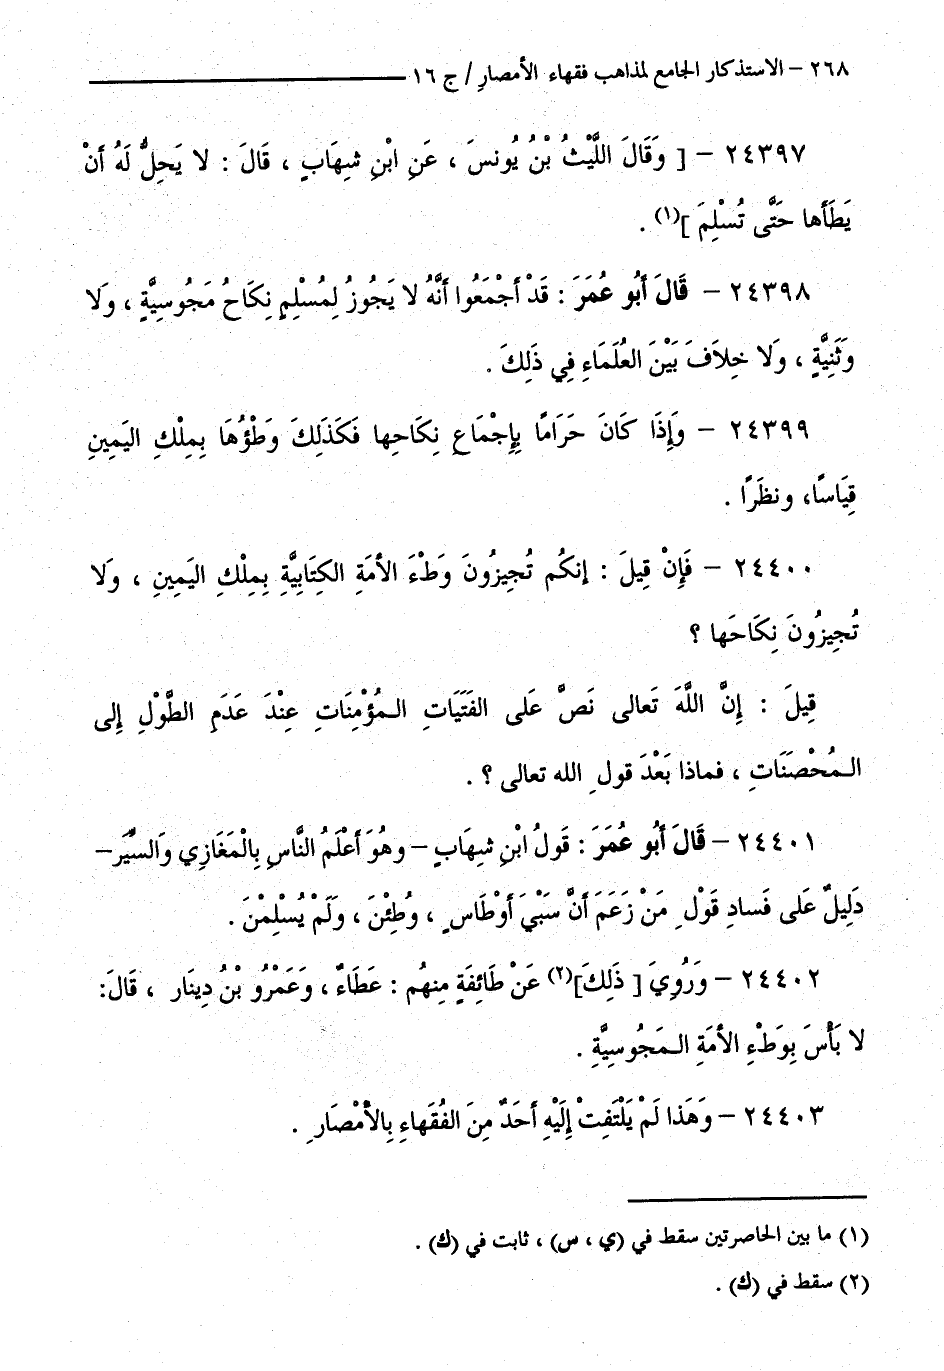 ٢٦٨ – الاستذكار الجامع لمذاهب فقهاء الأمصارِ / ج ١٦
٢٤٣٩٧ – [ وَقَالَ اللَّيْثُ بْنُ يُونسَ ، عَنِ ابْنِ شِهَابٍ ، قَالَ : لا يَحِلُّ لَهُ أنْ
يَطَأَها حَتَّى تُسْلِمَ ](١) .
٢٤٣٩٨ – قَالَ أَبُو عُمَرَ : قَدْ أَجْمَعُوا أَنَّهُ لا يَجُوزُ لِمُسْلِمٍ نِكَاحُ مَجُوسِيَّةٍ ، وَلا
وَثَنِيَّةٍ ، وَلا خِلاَفَ بَيْنَ العُلَمَاءِ فِي ذَلِكَ .
٢٤٣٩٩ – وَإِذَا كَانَ حَرَامًا بِإِجْمَاعٍ نِكَاحِها فَكَذَلِكَ وَطْؤُهَا بِمِلْكِ اليَمِينِ
قِيَاسًا، ونظَرًا .
٢٤٤٠٠ – فَإِنْ قِيلَ : إنكُم تُجِيزُونَ وَطْءَ الأمَةِ الكِتَابِيَّةِ بِمِلْكِ اليَمِينِ ، وَلا
تُجِيزُونَ نِكَاحَها ؟
قِيلَ : إِنَّ اللَّهَ تَعالى نَصَّ عَلى الفَتَيَاتِ الـمُؤْمِنَاتِ عِنْدَ عَدَمِ الطَّوْلِ إِلى
الـمُحْصَنَاتِ ، فماذا بَعْدَ قولِ الله تعالى ؟ .
٢٤٤٠١ – قَالَ أَبُو عُمَرَ : قَولُ ابْنِ شِهَابٍ – وهُوَ أَعْلَمُ النَّاسِ بِالْمَغَازِي وَالسِّيَر –
دَلِيلٌ عَلى فَسادِ قَوْلِ مَنْ زَعَمَ أَنَّ سَبْيَ أَوْطَاسٍ ، وُطِئْنَ ، وَلَمْ يُسْلِمْنَ .
٢٤٤٠٢ – وَرُوِيَ [ ذَلِكَ](٢) عَنْ طَائِفَةٍ مِنهُم : عَطَاءٌ ، وَعَمْرُو بْنُ دِينَار ، قَالَ:
لا بَأْسَ بِوَطْءِ الأَمَةِ الـمَجُوسِيَّةِ .
٢٤٤٠٣ – وَهَذا لَمْ يَلْتَفِتْ إِلَيْهِ أَحَدٌ مِنَ الفُقَهاءِ بِالأَمْصَارِ .
(١) ما بين الحاصرتين سقط في (ي ، س) ، ثابت في (ك) .
(٢) سقط في (ك) .